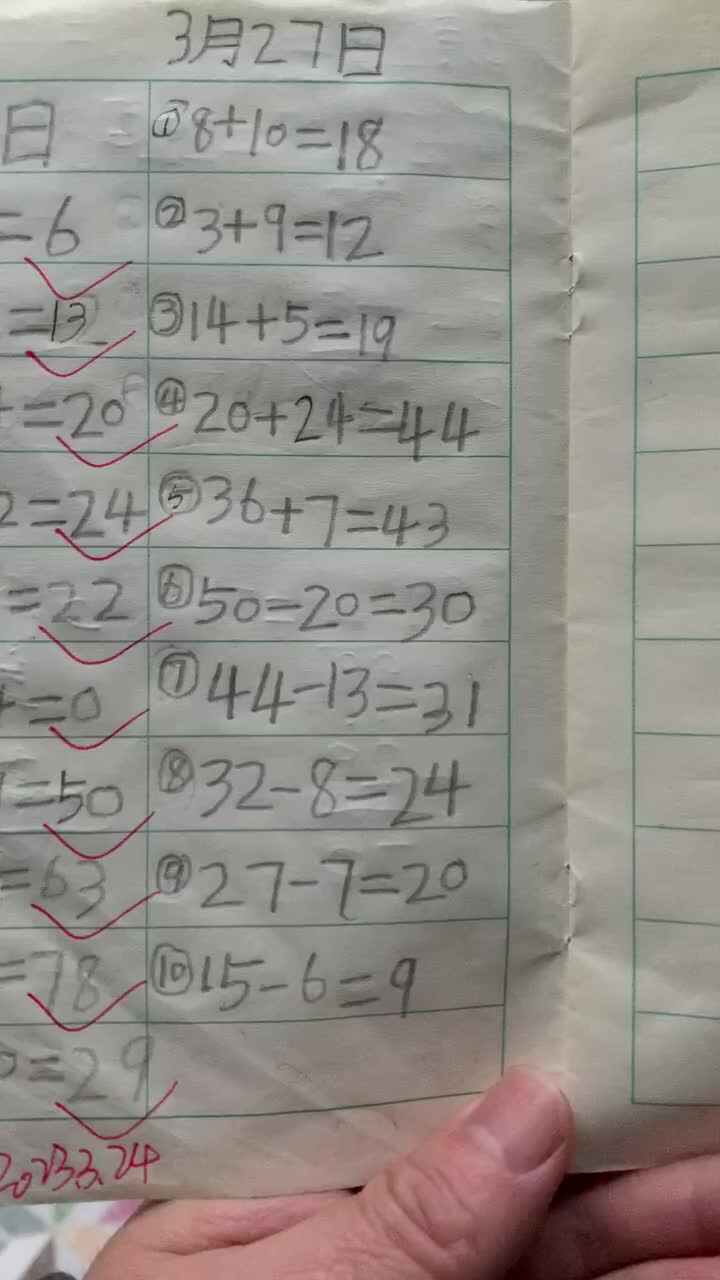 日
=6
=13
=20
2=24
=22
=0
=50
=63
=78
=29
2023.3.24
3月27日
①8+10=18
②3+9=12
③14+5=19
④20+24=44
⑤36+7=43
⑥50-20=30
⑦44-13=31
⑧32-8=24
⑨27-7=20
⑩15-6=9